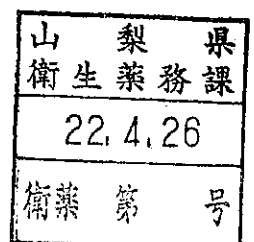 山梨県
衛生薬務課
22.4.26
衛薬 第 号